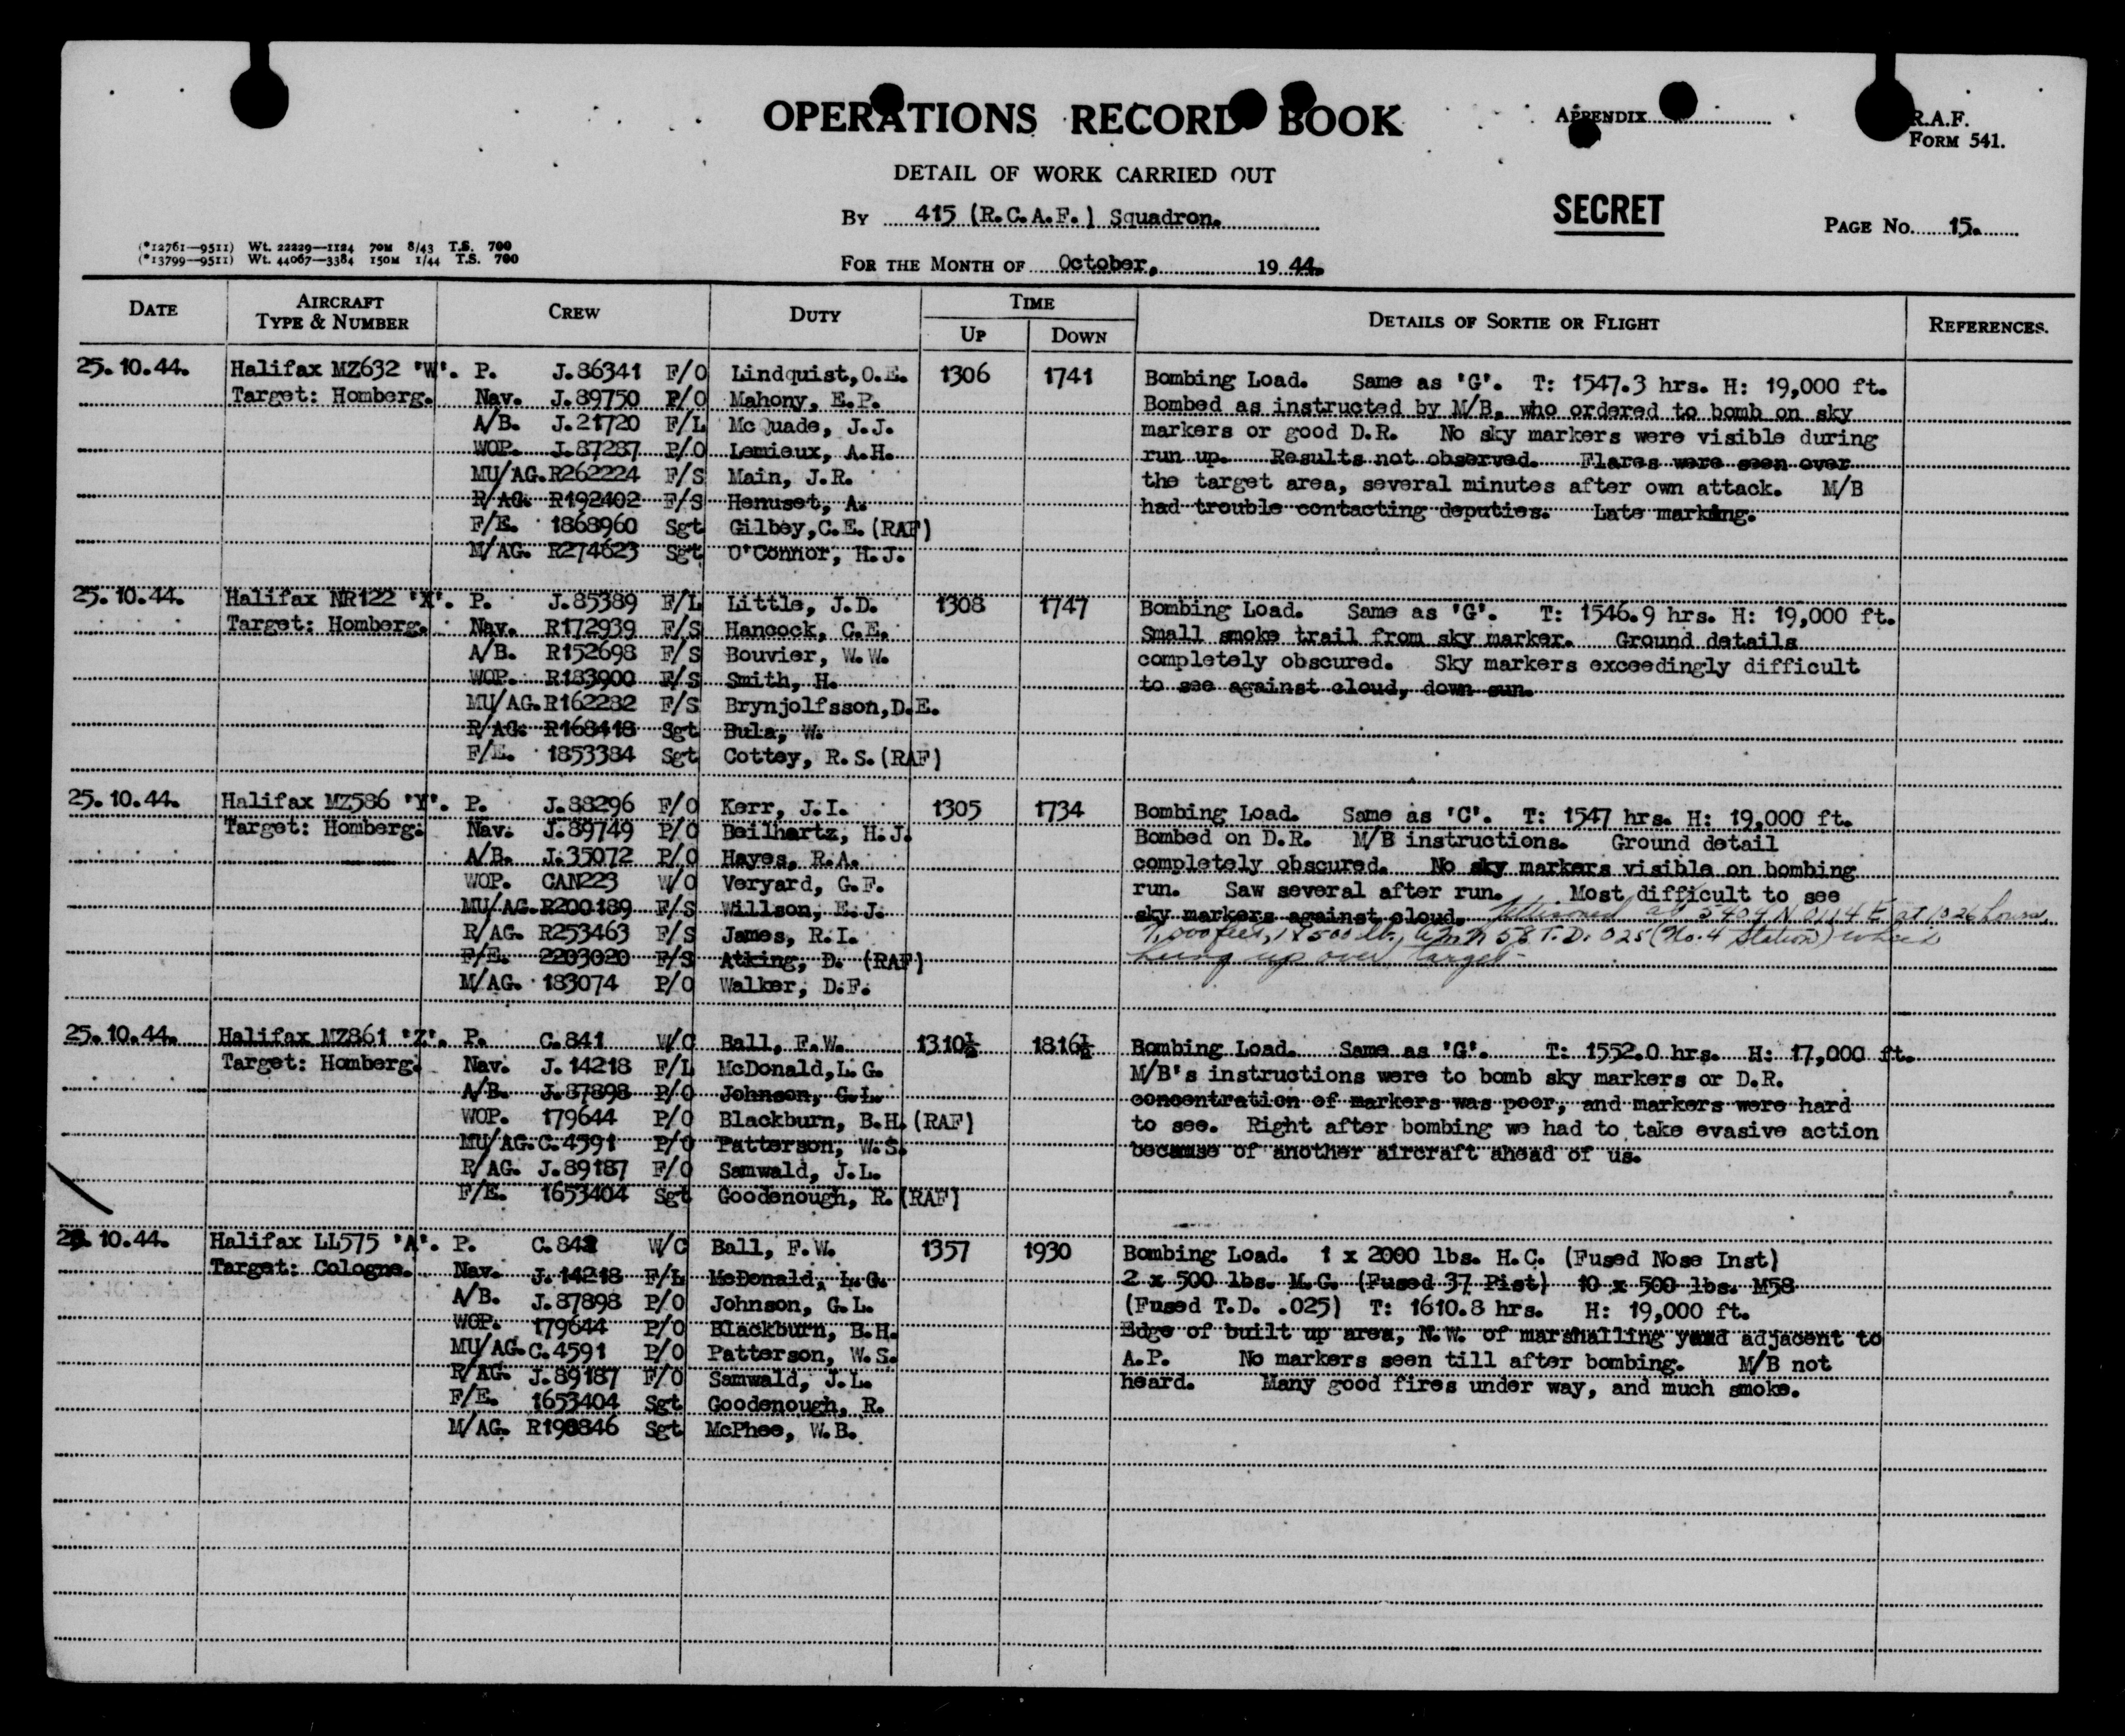 OPERATIONS RECORD BOOK
APPENDIX
R.A.F.
FORM 541.
DETAIL OF WORK CARRIED OUT
BY 415 (R.C.A.F.) Squadron.
SECRET
PAGE No. 15.
(*12761—9511) Wt. 22229—1124 70M 8/43 T.S. 700
(*13799—9511) Wt. 44067—3384 150M 1/44 T.S. 700
FOR THE MONTH OF October, 1944.
DATE AIRCRAFT TYPE & NUMBER CREW DUTY TIME UP DOWN DETAILS OF SORTIE OR FLIGHT REFERENCES.
25.10.44. Halifax MZ632 'W'. P. J.86341 F/O Lindquist,O.E. 1306 1741 Bombing Load. Same as 'G'. T: 1547.3 hrs. H: 19,000 ft.
Target: Homberg. Nav. J.89750 P/O Mahony, E.P. Bombed as instructed by M/B, who ordered to bomb on sky
A/B. J.21720 F/L McQuade, J.J. markers or good D.R. No sky markers were visible during
WOP. J.87287 P/O Lemieux, A.H. run up. Results not observed. Flares were seen over
MU/AG. R262224 F/S Main, J.R. the target area, several minutes after own attack. M/B
R/AG. R192402 F/S Henuset, A. had trouble contacting deputies. Late marking.
F/E. 1868960 Sgt Gilbey,C.E.(RAF)
M/AG. R274623 Sgt O'Connor, H.J.
25.10.44. Halifax NR122 'X'. P. J.85389 F/L Little, J.D. 1308 1747 Bombing Load. Same as 'G'. T: 1546.9 hrs. H: 19,000 ft.
Target: Homberg. Nav. R172939 F/S Hancock, C.E. Small smoke trail from sky marker. Ground details
A/B. R152698 F/S Bouvier, W.W. completely obscured. Sky markers exceedingly difficult
WOP. R183900 F/S Smith, H. to see against cloud, down sun.
MU/AG. R162282 F/S Brynjolfsson,D.E.
R/AG. R168418 Sgt Bula, W.
F/E. 1853384 Sgt Cottey, R.S.(RAF)
25.10.44. Halifax MZ586 'Y'. P. J.88296 F/O Kerr, J.I. 1305 1734 Bombing Load. Same as 'C'. T: 1547 hrs. H: 19,000 ft.
Target: Homberg. Nav. J.89749 P/O Beilhartz, H.J. Bombed on D.R. M/B instructions. Ground detail
A/B. J.35072 P/O Hayes, R.A. completely obscured. No sky markers visible on bombing
WOP. CAN223 W/O Veryard, G.F. run. Saw several after run. Most difficult to see
MU/AG. R200189 F/S Willson, E.J. sky markers against cloud. Jettisoned at 5404 N 0114 E at hours
R/AG. R253463 F/S James, R.I. feet, 1 x 500 lb. M 58 T.D. .025 (No. 4 Station) which
F/E. 2203020 F/S Atking, D. (RAF) hung up over target.
M/AG. 183074 P/O Walker, D.F.
25.10.44. Halifax MZ861 'Z'. P. C.841 W/C Ball, F.W. 1310½ 1816½ Bombing Load. Same as 'G'. T: 1552.0 hrs. H: 17,000 ft.
Target: Homberg. Nav. J.14218 F/L McDonald,L.G. M/B's instructions were to bomb sky markers or D.R.
A/B. J.87898 P/O Johnson, G.L. concentration of markers was poor, and markers were hard
WOP. 179644 P/O Blackburn, B.H.(RAF) to see. Right after bombing we had to take evasive action
MU/AG. C.4591 P/O Patterson, W.S. because of another aircraft ahead of us.
R/AG. J.89187 F/O Samwald, J.L.
F/E. 1653404 Sgt Goodenough, R.(RAF)
10.44. Halifax LL575 'A'. P. W/C Ball, F.W. 1357 1930 Bombing Load. 1 x 2000 lbs. H.C. (Fused Nose Inst)
Target: Cologne. Nav. J.14218 F/L McDonald, L.G. 2 x 500 lbs. M.C. (Fused 37 Pist) 10 x 500 lbs. M58
A/B. J.87898 P/O Johnson, G.L. (Fused T.D. .025) T: 1610.8 hrs. H: 19,000 ft.
WOP. 179644 P/O Blackburn, B.H. Edge of built up area, N.W. of marshalling yard adjacent to
MU/AG. C.4591 P/O Patterson, W.S. A.P. No markers seen till after bombing. M/B not
R/AG. J.89187 F/O Samwald, J.L. heard. Many good fires under way, and much smoke.
F/E. 1653404 Sgt Goodenough, R.
M/AG. R190846 Sgt McPhee, W.B.